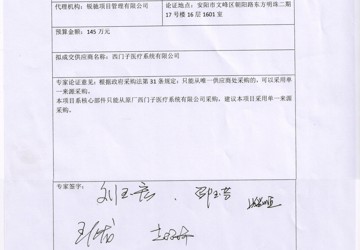 代理机构：锐驰项目管理有限公司
论证地点：安阳市文峰区朝阳路东方明珠二期
17号楼16层1601室
预算金额：145万元
拟成交供应商名称：西门子医疗系统有限公司
专家论证意见：根据政府采购法第31条规定：只能从唯一供应商处采购的，可以采用单
一来源采购。
本项目系核心部件只能从原厂西门子医疗系统有限公司采购。建议本项目采用单一来源
采购。
专家签字：